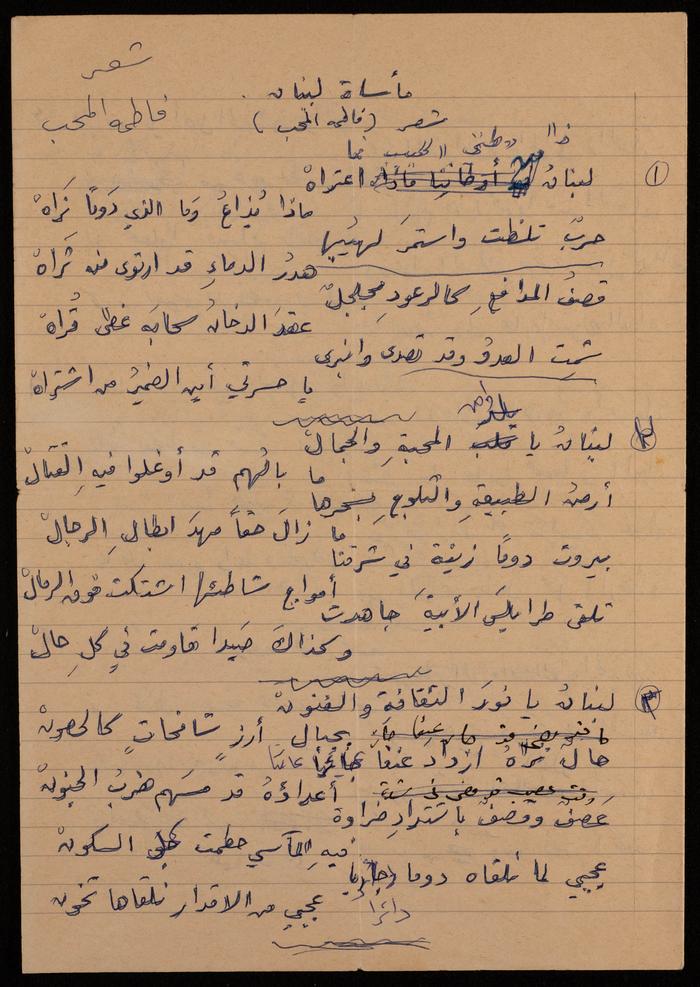 شعر
فاطمة المحب
مأساة لبنان
شعر (فاطمة المحب)
ذا وطني الحبيب بما
① لبنانُ أوطانِنا ماذا اعتراهْ
ماذا يُذاعُ وَما الذي دَومًا نَرَاهْ
حربٌ تلظت واستمرَ لهيبُها
هدرُ الدماءِ قد ارتوى منه ثَراهْ
قصفُ المدافعِ كالرعودِ مجلجلٌ
عقدَ الدخانُ سحابَه غطى قُراهْ
شمِت العدوُ وقد تصدى وانبرى
يا حسرتي أين الضميرُ من اشتراهْ
② لبنانُ يا قلب المحبةِ والجمالْ
ما بالُهم قد أوغلوا فيهِ القتالْ
أرضُ الطبيعةِ والثلوجِ بسحرها
ما زالَ حقاً مهدَ ابطالِ الرجالْ
بيروت دوماً زينة في شرقنا
أمواج شاطئها اشتكت فوق الرمالْ
تلقى طرابلسَ الأبيةَ جاهدت
وكذاكَ صَيدا قاومت في كلِ حالْ
③ لبنانُ يا نورَ الثقافةِ والفنونْ
بجبالِ أرزٍ شامخاتٍ كالحصونْ
حالٌ نَرَاهُ ازداد عنفا عاتيا
أعداؤهُ قد مسَهم ضربُ الجنونْ
عَصفٌ وقصفٌ باشتدادِ ضراوة
فيهِ المآسي حطمت كل السكونْ
عجبي لما نلقاه دوما جائرا
دائرا
عجبي من الاقدار نلقاها تخون